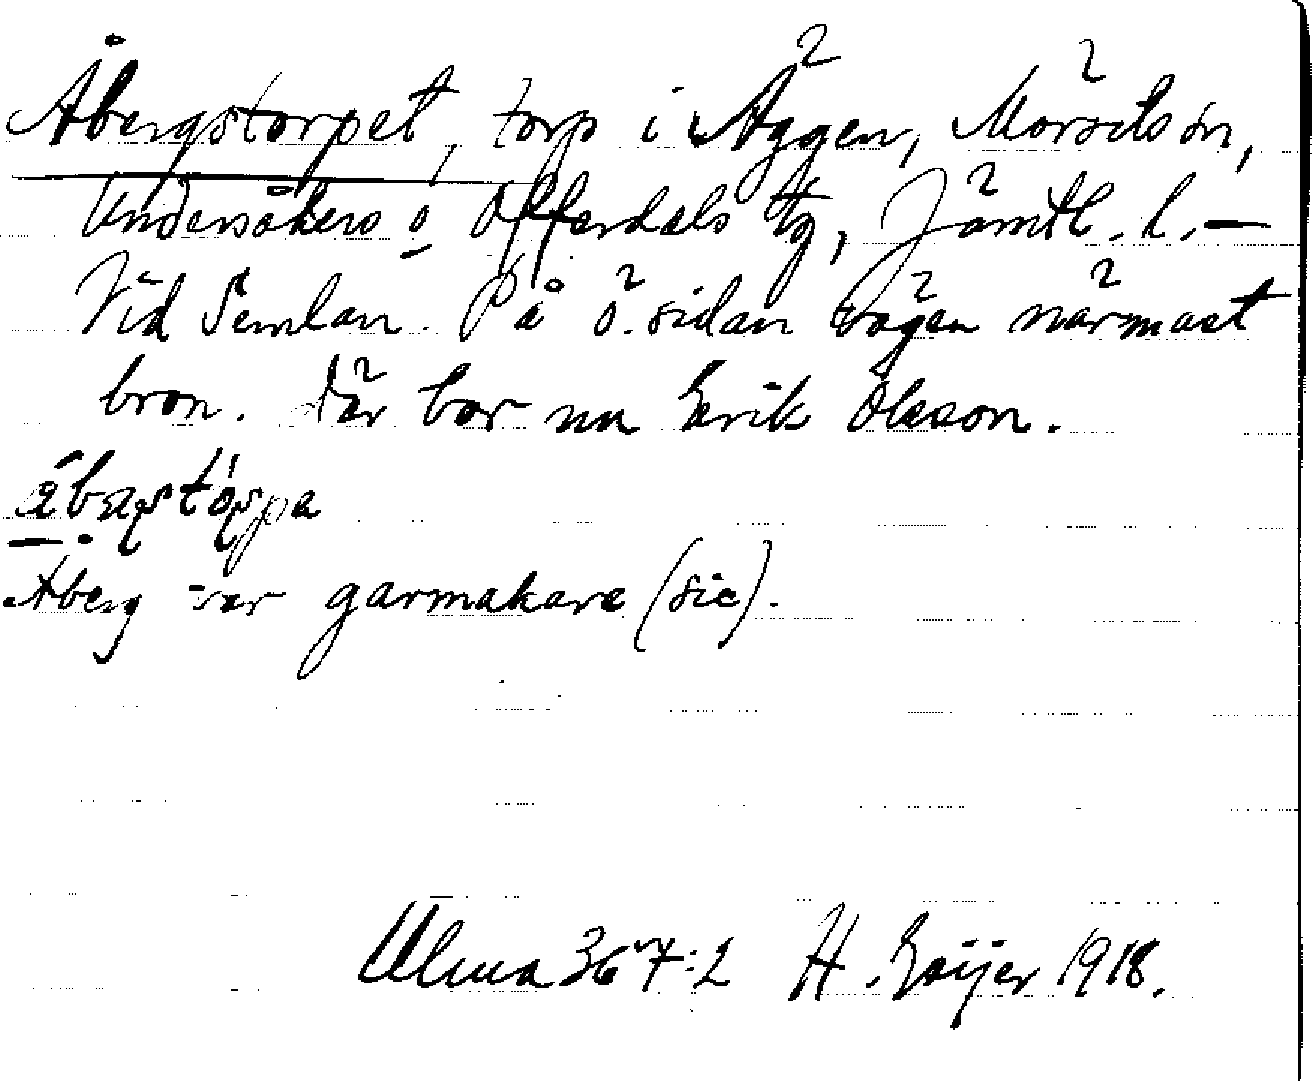 Åbergstorpet, torp i Äggen, Mörsils sn,
Undersåkers o. Offerdals tg, Jämtl. l. –
Vid Semlan. På ö. sidan vägen närmast
bron. Där bor nu Erik Olsson.
Åberg var garmakare (sic).
Ulma 367:2 H. Geijer 1918.